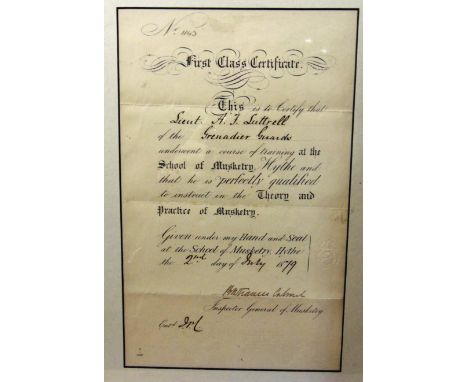 No. 1143
First Class Certificate.
This is to Certify that
Lieut A. F. Luttrell
of the Grenadier Guards
underwent a course of training at the
School of Musketry, Hythe and
that he is perfectly qualified
to instruct in the Theory and
Practice of Musketry.
Given under my Hand and Seal
at the School of Musketry, Hythe
the 2nd day of July 1879
Colonel
Inspector General of Musketry